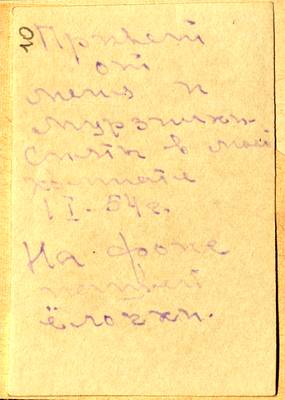 20
Привет
от
меня и
мурзилки.
Сняты в моей
комнате
1 I - 54 г.
На фоне
нашей
ёлочки.